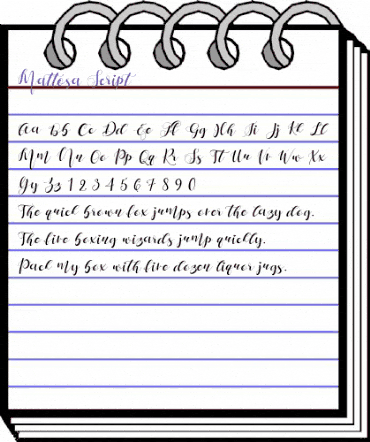 Mattosa Script
Aa Bb Cc Dd Ee Ff Gg Hh Ii Jj Kk Ll
Mm Nn Oo Pp Qq Rr Ss Tt Uu Vv Ww Xx
Yy Zz 1 2 3 4 5 6 7 8 9 0
The quick brown fox jumps over the lazy dog.
The five boxing wizards jump quickly.
Pack my box with five dozen liquor jugs.